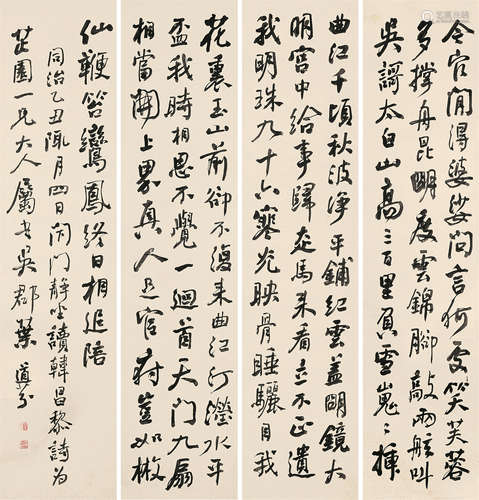 今官閒得婆娑問言何處笑芙蓉
多撐舟昆明度雲錦腳敲兩舷叫
吳謌太白山高三百里負雪嵬嵬插
曲江千頃秋波淨平鋪紅雲蓋明鏡大
明宮中給事歸走馬來看立不正遺
我明珠九十六寒光映骨睡驪目我
花裏玉山前卻不復來曲江汀瀅水平
盃我時相思不覺一迴首天門九扇
相當開上界真人足官府豈如散
仙鞭笞鸞鳳終日相追陪
同治乙丑陬月四日閉門靜坐讀韓昌黎詩为
芷園一兄大人屬書吳郡葉道芬